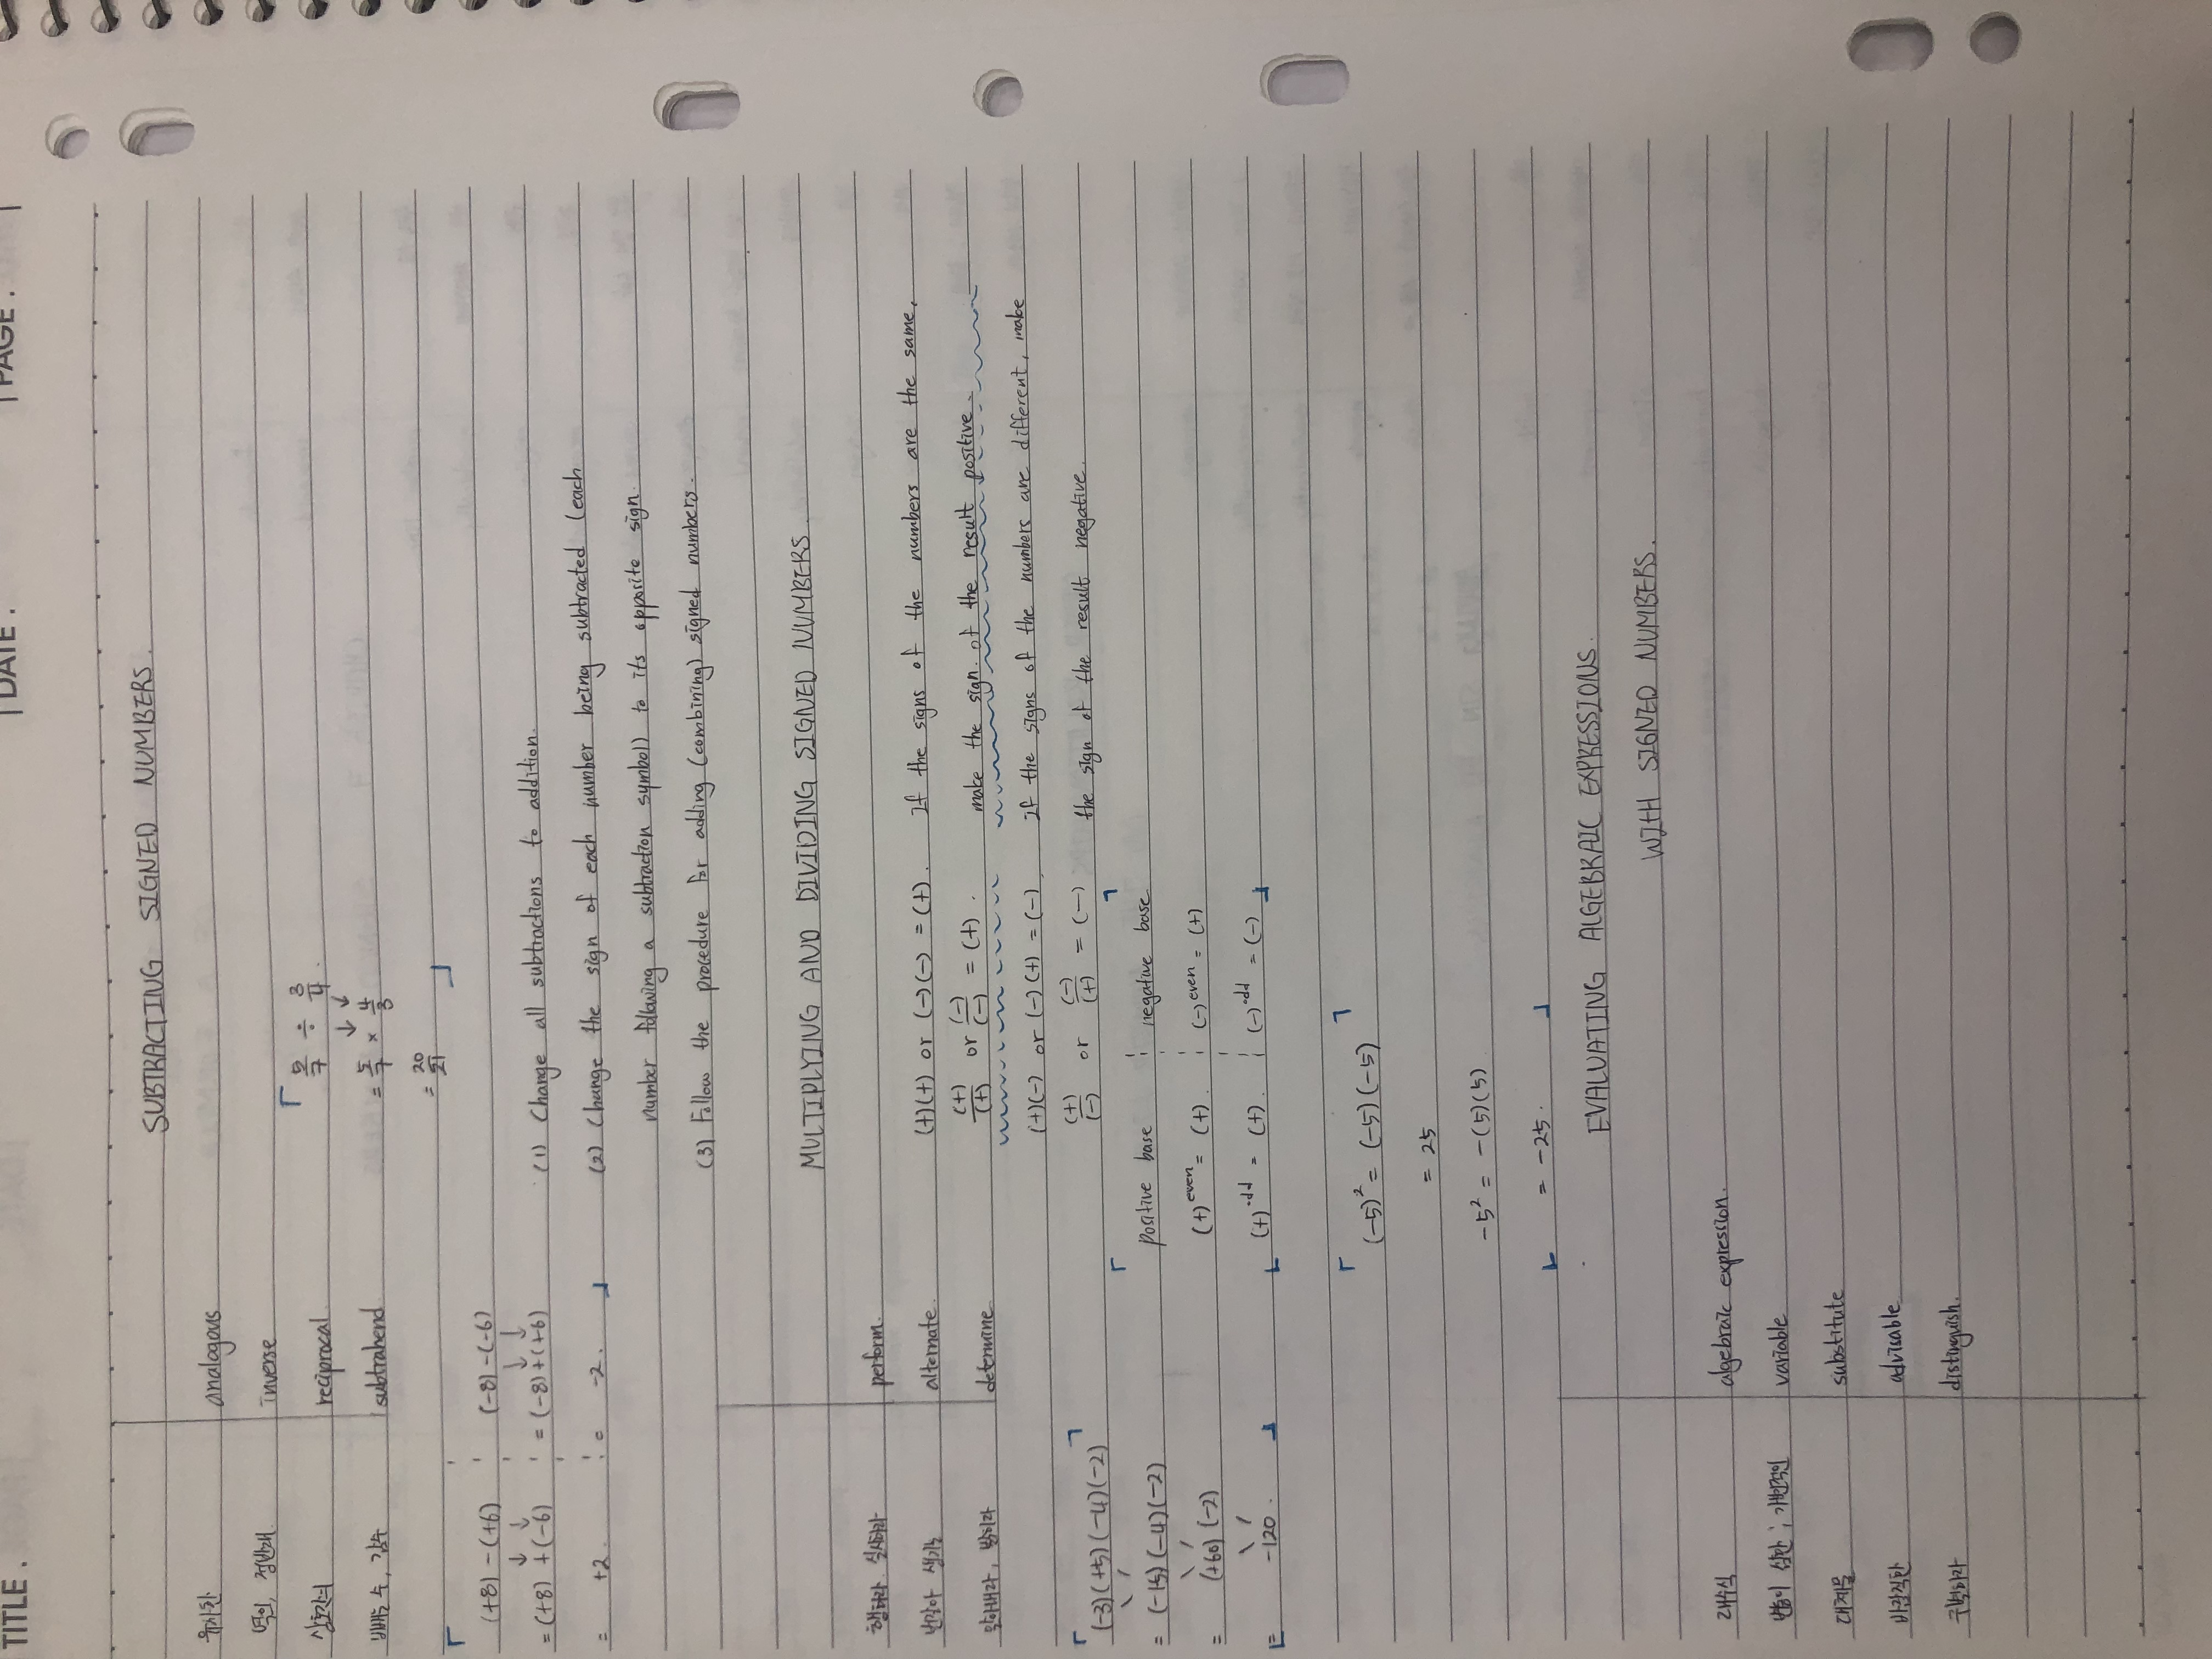 TITLE.
DATE.
PAGE.
SUBTRACTING SIGNED NUMBERS.
유사한 analogous
역의, 정반대 inverse
reciprocal 5/7 ÷ 3/4.
빼는 수, 감수 subtrahend = 5/7 × 4/3
= 20/21
(+8) - (+6) (-8) - (-6)
= (+8) + (-6) = (-8) + (+6)
= +2. = -2.
(1) Change all subtractions to addition.
(2) Change the sign of each number being subtracted (each
number following a subtraction symbol) to its opposite sign.
(3) Follow the procedure for adding (combining) signed numbers.
MULTIPLYING AND DIVIDING SIGNED NUMBERS.
행하다. 실시하다 perform.
번갈아 생기는 alternate. (+)(+) or (-)(-) = (+). If the signs of the numbers are the same,
알아내다, 밝히다 determine (+)/(+) or (-)/(-) = (+). make the sign of the result positive.
(+)(-) or (-)(+) = (-). If the signs of the numbers are different, make
(+)/(-) or (-)/(+) = (-) the sign of the result negative.
(-3)(+5)(-4)(-2)
= (-15)(-4)(-2)
= (+60)(-2)
= -120.
positive base negative base
(+)even = (+). (-)even = (+)
(+)odd = (+). (-)odd = (-)
(-5)² = (-5)(-5)
= 25
-5² = -(5)(5)
= -25.
EVALUATING ALGEBRAIC EXPRESSIONS.
WITH SIGNED NUMBERS.
대수식 algebraic expression.
변동이 심한; 가변적인 variable
대체물 substitute
바람직한 advisable
구별하다 distinguish.